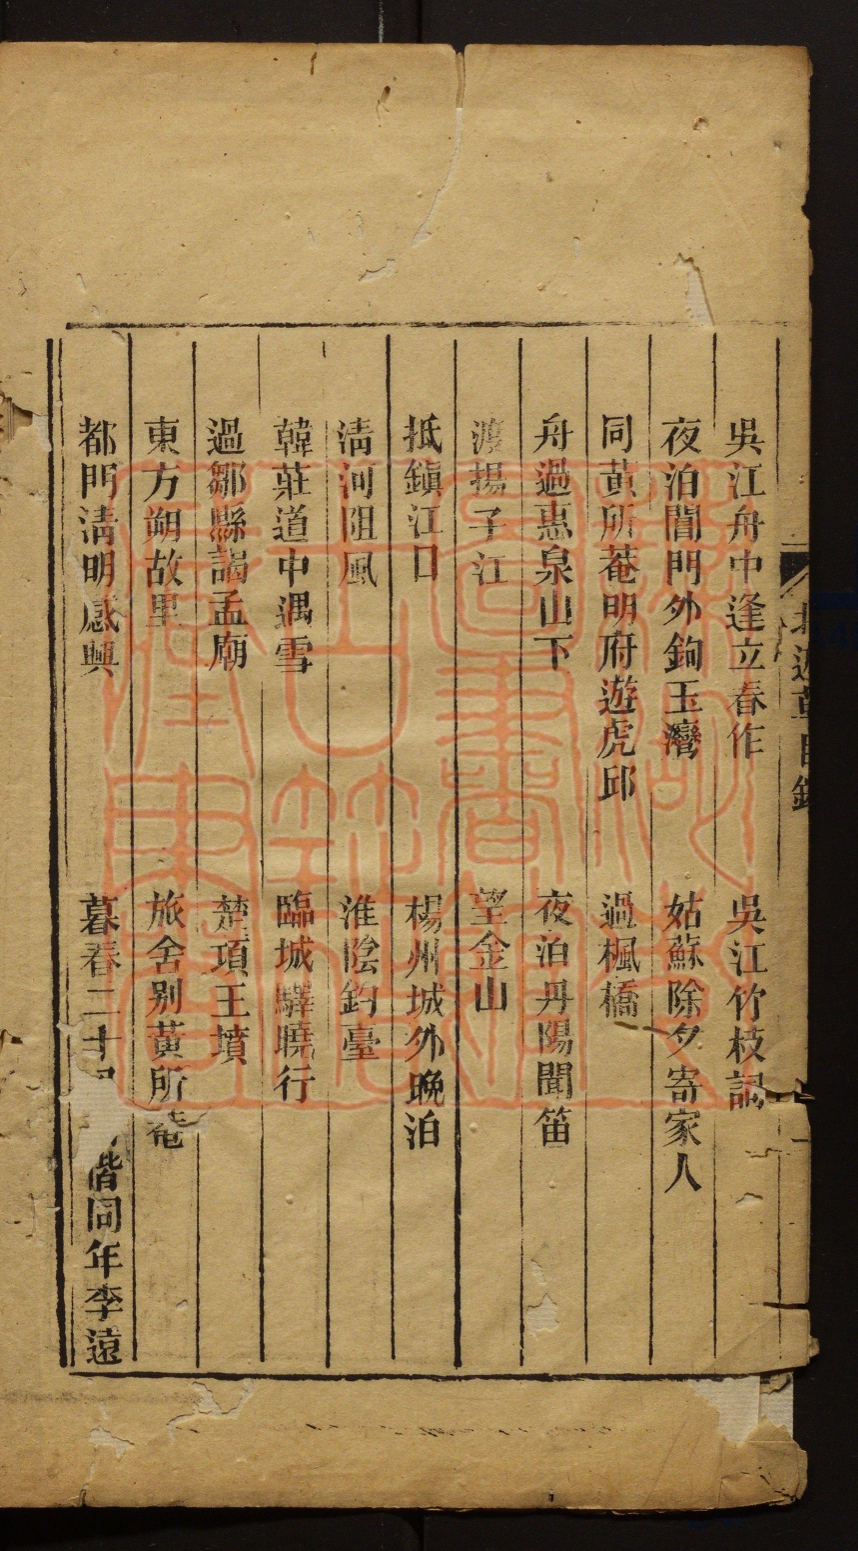 北遊草目錄
吳江舟中逢立春作　吳江竹枝詞
夜泊閶門外鉤玉灣　姑蘇除夕寄家人
同黃所菴明府遊虎邱　過楓橋
舟過惠泉山下　夜泊丹陽聞笛
渡揚子江　望金山
抵鎮江口　楊州城外晚泊
淸河阻風　淮陰釣臺
韓莊道中遇雪　臨城驛曉行
過鄒縣謁孟廟　楚項王墳
東方朔故里　旅舍别黃所菴
都門淸明感興　暮春二十 偕同年李遠